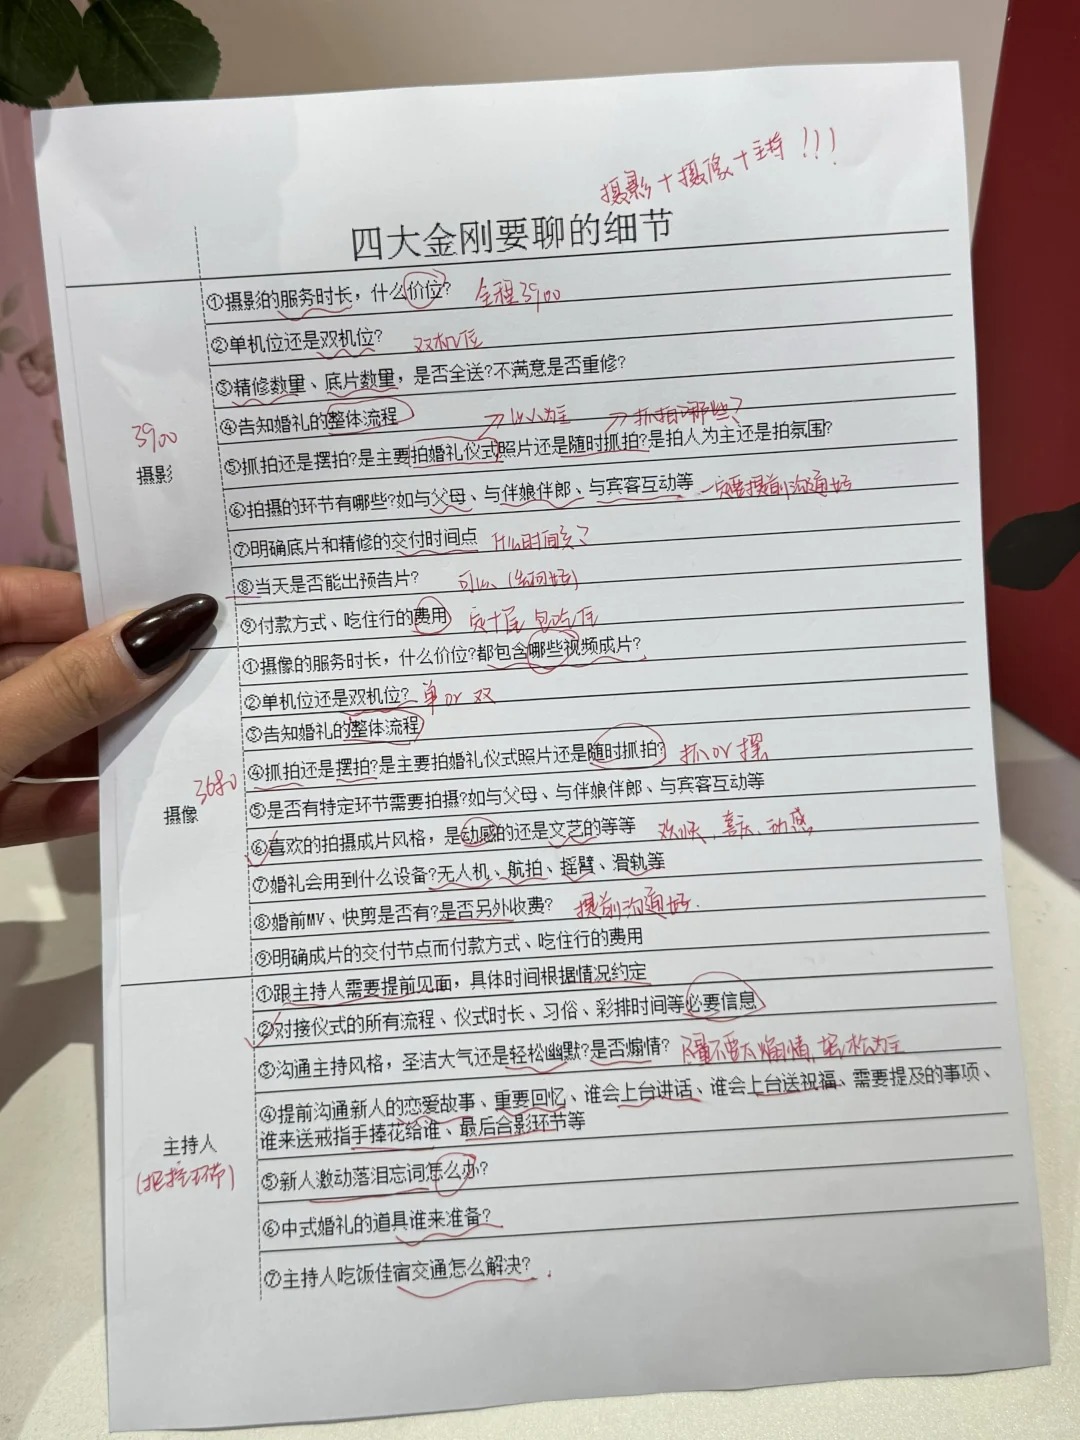 摄影+摄像+主持!!!
四大金刚要聊的细节
①摄影的服务时长，什么价位? 全程3900
②单机位还是双机位? 双机位
③精修数量、底片数量，是否全送?不满意是否重修?
④告知婚礼的整体流程
以人为主 抓拍哪些?
3900
摄影
⑤抓拍还是摆拍?是主要拍婚礼仪式照片还是随时抓拍?是拍人为主还是拍氛围?
⑥拍摄的环节有哪些?如与父母、与伴娘伴郎、与宾客互动等 一定要提前沟通好
⑦明确底片和精修的交付时间点 什么时间交?
⑧当天是否能出预告片? 可以
⑨付款方式、吃住行的费用 定+尾 包吃住
①摄像的服务时长，什么价位?都包含哪些视频成片?
②单机位还是双机位? 单or双
③告知婚礼的整体流程
④抓拍还是摆拍?是主要拍婚礼仪式照片还是随时抓拍? 抓or摆
3680
摄像
⑤是否有特定环节需要拍摄?如与父母、与伴娘伴郎、与宾客互动等
⑥喜欢的拍摄成片风格，是动感的还是文艺的等等 欢快、喜庆、动感
⑦婚礼会用到什么设备?无人机、航拍、摇臂、滑轨等
⑧婚前MV、快剪是否有?是否另外收费? 提前沟通好.
⑨明确成片的交付节点而付款方式、吃住行的费用
①跟主持人需要提前见面，具体时间根据情况约定
②对接仪式的所有流程、仪式时长、习俗、彩排时间等必要信息
③沟通主持风格，圣洁大气还是轻松幽默?是否煽情? 尽量不要太煽情，轻松为主
④提前沟通新人的恋爱故事、重要回忆、谁会上台讲话、谁会上台送祝福、需要提及的事项、
谁来送戒指手捧花给谁、最后合影环节等
主持人
(把控环节)
⑤新人激动落泪忘词怎么办?
⑥中式婚礼的道具谁来准备?
⑦主持人吃饭住宿交通怎么解决?